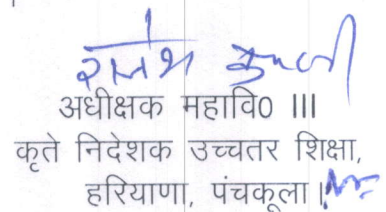 अधीक्षक महावि0 III
कृते निदेशक उच्चतर शिक्षा,
हरियाणा, पंचकूला।